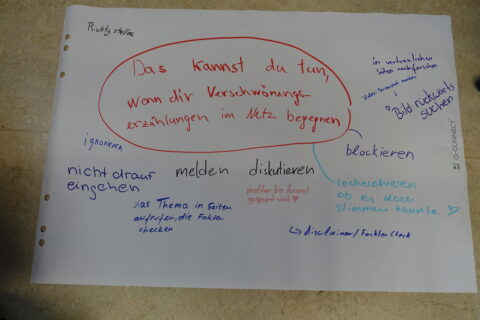 Richtigstellen
Das kannst du tun,
wenn dir Verschwörungs
erzählungen im Netz begegnen
in vertraulichen
Seiten nachforschen
Bild: rückwärts
suchen
ignorieren
nicht drauf
eingehen
melden
diskutieren
blockieren
melden bis Account
gesperrt wird
recherchieren
ob es doch
stimmen könnte
das Thema in Seiten
aufrufen, die Fakten
checken
↳ disclaimer/Faktencheck
Q-CONNECT